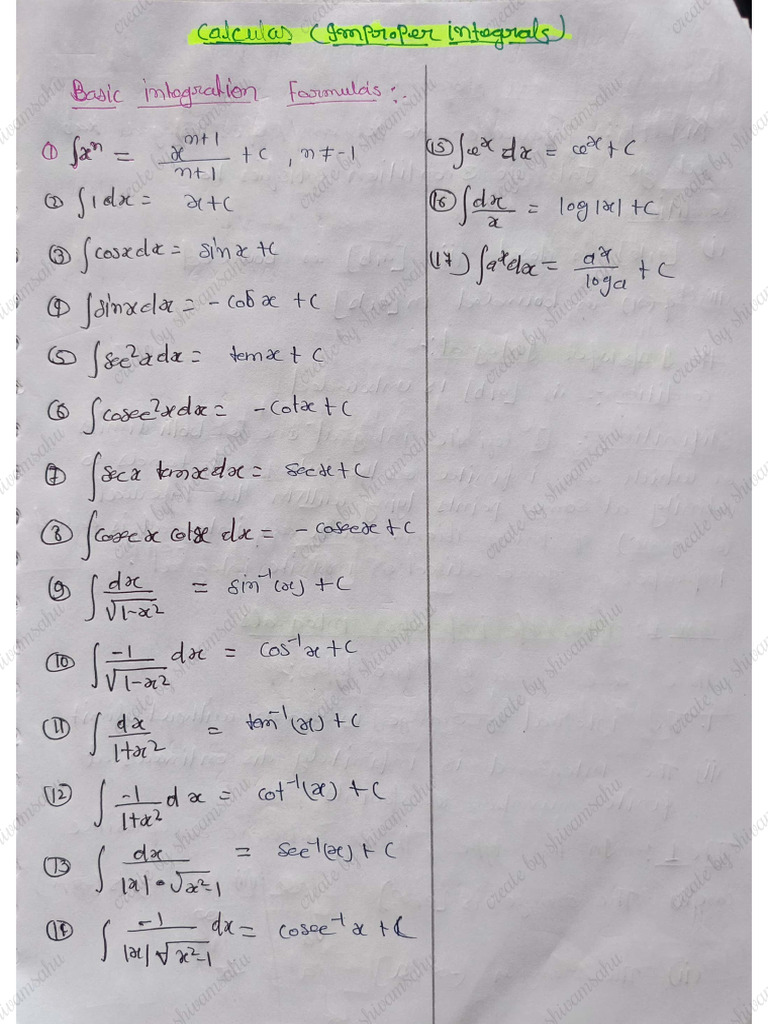 Calculas (Improper integrals)
Basic integration Formulas :-
① ∫xⁿ = xⁿ⁺¹/n+1 + C , n ≠ -1
② ∫1 dx = x + C
③ ∫cosx dx = sinx + C
④ ∫sinx dx = - cosx + C
⑤ ∫sec²x dx = tanx + C
⑥ ∫cosec²x dx = - cotx + C
⑦ ∫secx tanx dx = secx + C
⑧ ∫cosecx cotx dx = - cosecx + C
⑨ ∫dx/√1-x² = sin⁻¹(x) + C
⑩ ∫-1/√1-x² dx = cos⁻¹x + C
⑪ ∫dx/1+x² = tan⁻¹(x) + C
⑫ ∫-1/1+x² dx = cot⁻¹(x) + C
⑬ ∫dx/|x|•√x²-1 = sec⁻¹(x) + C
⑭ ∫-1/|x|√x²-1 dx = cosec⁻¹x + C
⑮ ∫eˣ dx = eˣ + C
⑯ ∫dx/x = log|x| + C
(17) ∫aˣdx = aˣ/loga + C
create by shivamsahu